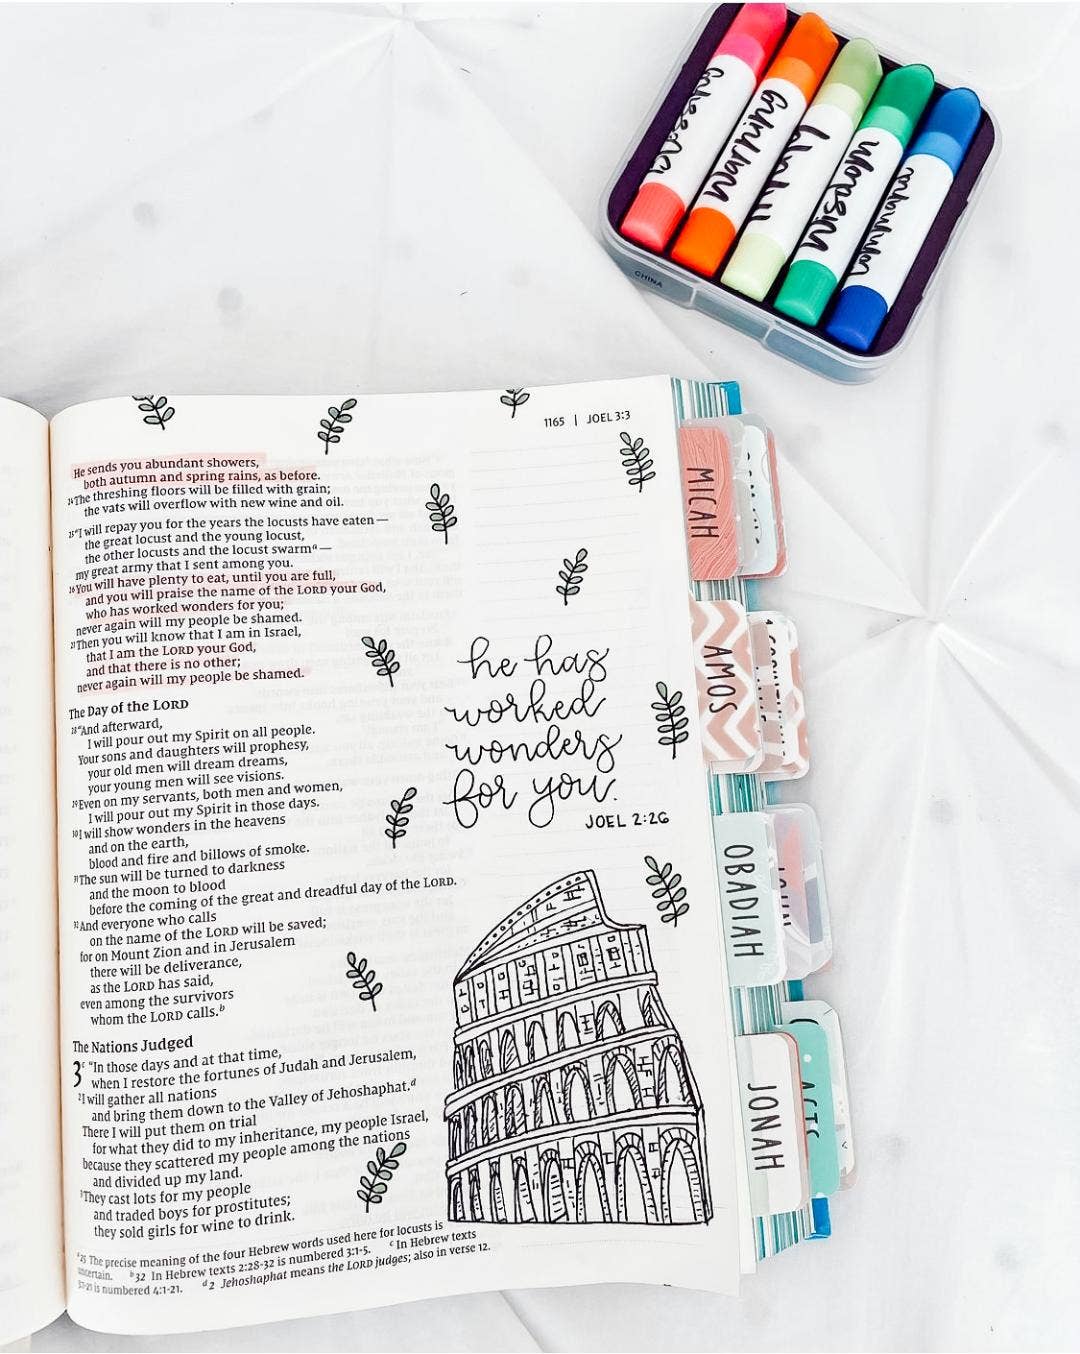 warning
wisdom
CHINA
1165 | JOEL 3:3
He sends you abundant showers,
both autumn and spring rains, as before.
24 The threshing floors will be filled with grain;
the vats will overflow with new wine and oil.
25 "I will repay you for the years the locusts have eaten—
the great locust and the young locust,
the other locusts and the locust swarm a —
my great army that I sent among you.
26 You will have plenty to eat, until you are full,
and you will praise the name of the LORD your God,
who has worked wonders for you;
never again will my people be shamed.
27 Then you will know that I am in Israel,
that I am the LORD your God,
and that there is no other;
never again will my people be shamed.
The Day of the LORD
28 "And afterward,
I will pour out my Spirit on all people.
Your sons and daughters will prophesy,
your old men will dream dreams,
your young men will see visions.
29 Even on my servants, both men and women,
I will pour out my Spirit in those days.
30 I will show wonders in the heavens
and on the earth,
blood and fire and billows of smoke.
31 The sun will be turned to darkness
and the moon to blood
before the coming of the great and dreadful day of the LORD.
32 And everyone who calls
on the name of the LORD will be saved;
for on Mount Zion and in Jerusalem
there will be deliverance,
as the LORD has said,
even among the survivors
whom the LORD calls. b
The Nations Judged
3 c "In those days and at that time,
when I restore the fortunes of Judah and Jerusalem,
2 I will gather all nations
and bring them down to the Valley of Jehoshaphat. d
There I will put them on trial
for what they did to my inheritance, my people Israel,
because they scattered my people among the nations
and divided up my land.
3 They cast lots for my people
and traded boys for prostitutes;
they sold girls for wine to drink.
a 25 The precise meaning of the four Hebrew words used here for locusts is
uncertain. b 32 In Hebrew texts 2:28-32 is numbered 3:1-5. c In Hebrew texts
3:1-21 is numbered 4:1-21. d 2 Jehoshaphat means the LORD judges; also in verse 12.
he has
worked
wonders
for you.
JOEL 2:26
MICAH
AMOS
OBADIAH
JOHN
JONAH
ACTS